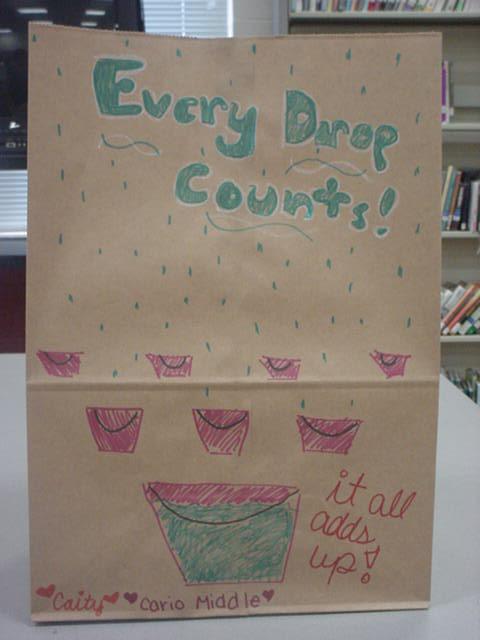 Every Drop
Counts!
it all
adds
up!
Caity Cario Middle